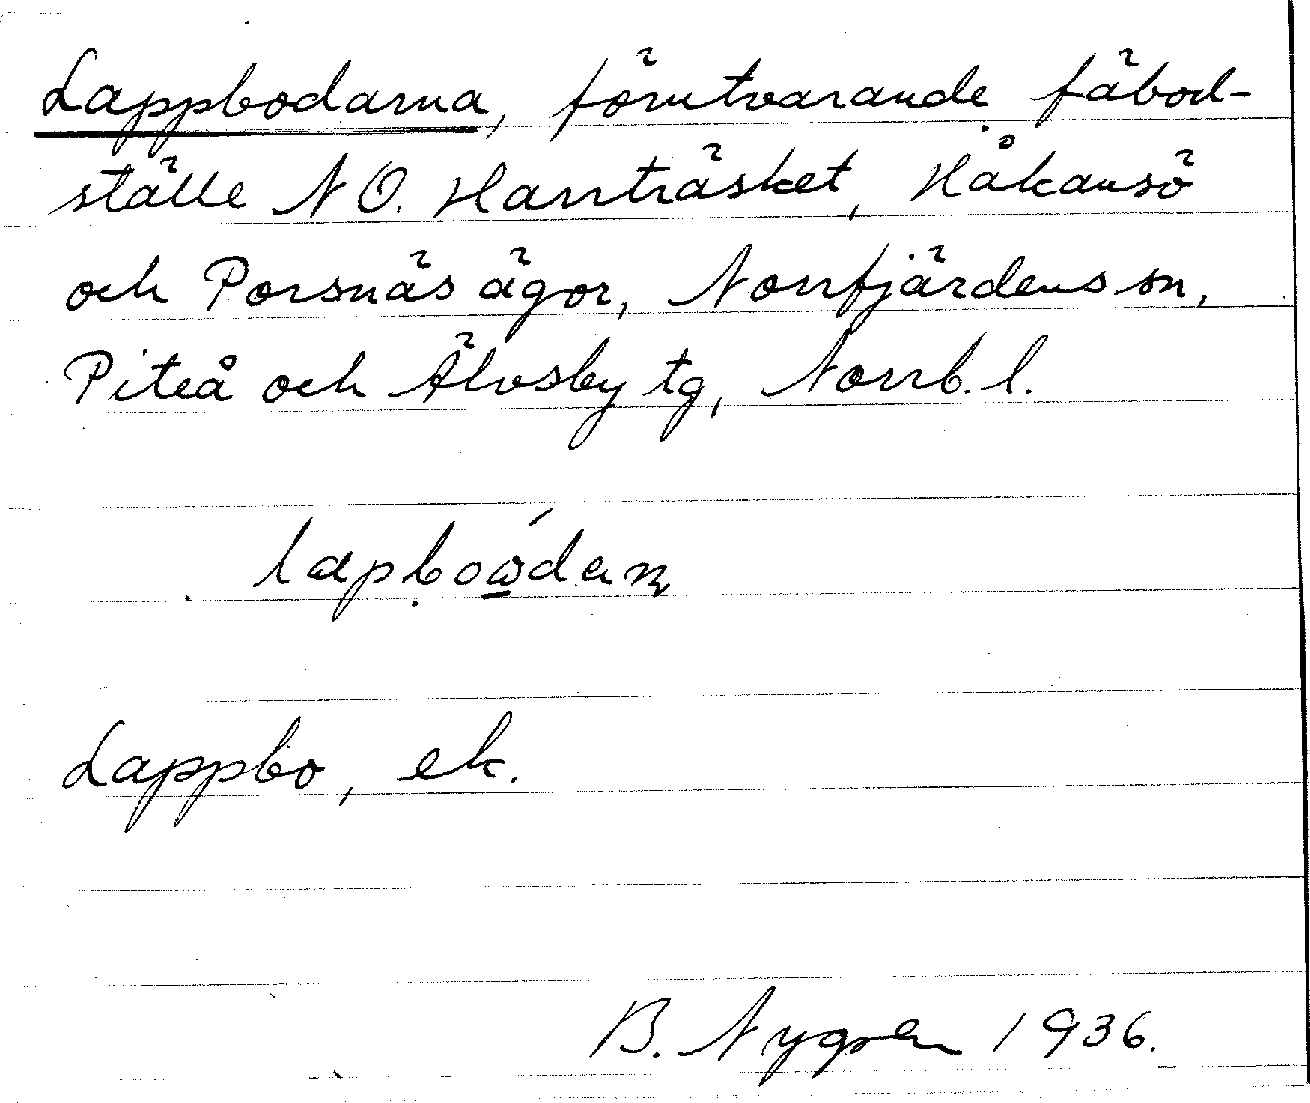 Lappbodarna, förutvarande fäbod-
ställe NO. Harrträsket, Håkansö
och Porsnäs ägor, Norrfjärdens sn,
Piteå och Älvsby tg, Norrb. l.
Lappbo, ek.
B. Nygren 1936.